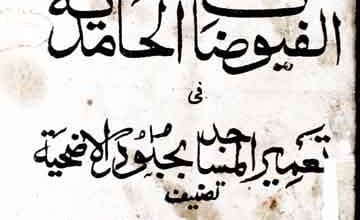 الفيوضات الحامدية
فی
تعمير المساجد بجلود الاضحية
تصنيف